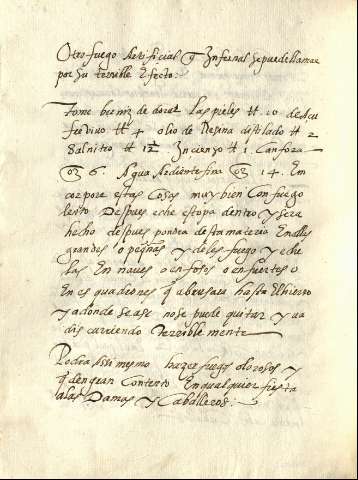 Otro fuego Artificial q Infernal sepuede llamar
por su terrible Efecto:
Tome berniz de dorar las pieles ℔ 10 de Açu
fre vivo ℔ 4 olio de Resina distilado ℔ 2
Salnitro ℔ 1½ Incienzo ℔ 1. Canfora
6. Agua Ardiente fina 14. En
corpore estas Cosas muy bien Con fuego
lento Despues eche estopa dentro y sera
hecho despues pondra desta materia En olles
grandes o peqñas y deles fuego y eche
las En naues o en fosos o en fuertes o
En esquadrones q abrusara hasta El hierro
y adonde se ase no se puede quitar y ua
dis curriendo terrible mente
Podra assi mesmo hazer fuegos olorosos y
q den gran Contento En qualquier fiesta
a las Damas y Caballeros: